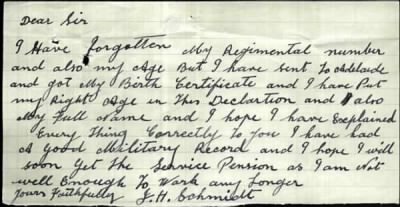 Dear Sir
I Have forgotten My Regimental number
and also my Age But I have sent To Adelaide
and got My Birth Certificate and I have Put
my Right Age in This Declartion and also
My Full Name and I hope I have Explained
Every Thing Correctly To you I have had
A Good Military Record and I hope I will
soon Get the Service Pension as I am Not
well Enough To Work any Longer
Yours Faithfully J. H. Schmidt